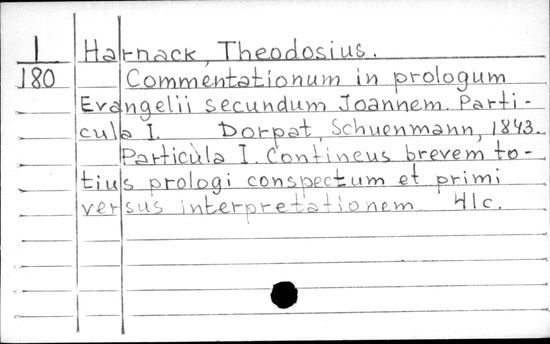 1 Harnack, Theodosius.
180 Commentationum in prologum
Evangelii secundum Joannem. Parti-
cula I. Dorpat, Schuenmann, 1843.
Particula I. Contineus brevem to-
tius prologi conspectum et primi
versus interpretationem 41c.